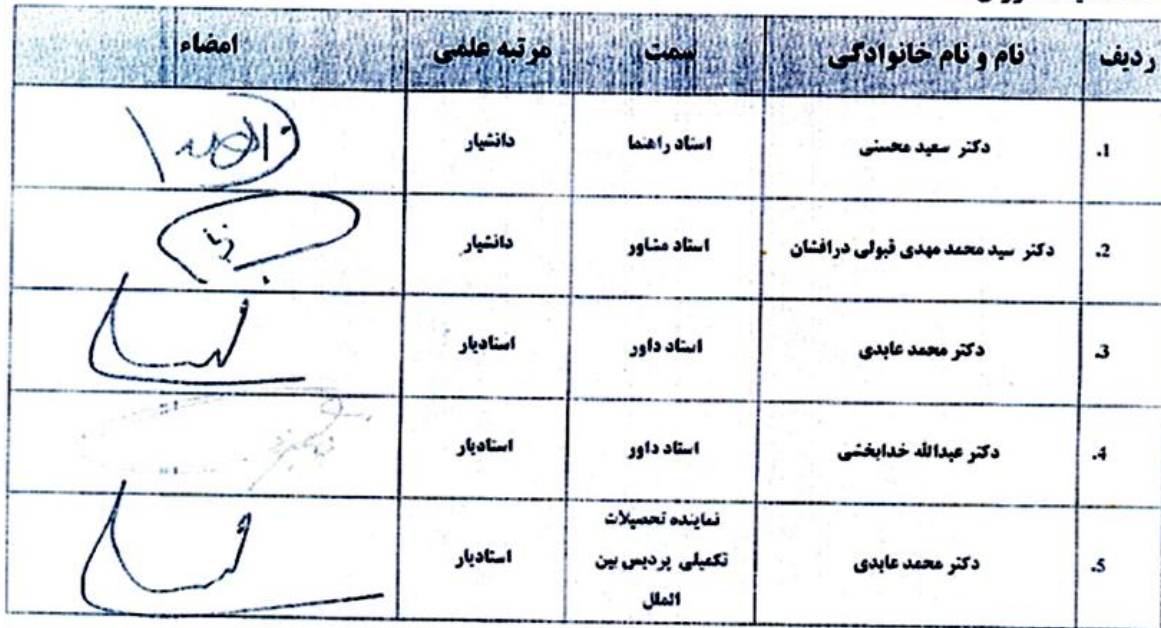 ردیف نام و نام خانوادگی سمت مرتبه علمی امضاء
1. دکتر سعید محسنی استاد راهنما دانشیار
2. دکتر سید محمد مهدی قبولی درافشان استاد مشاور دانشیار
3. دکتر محمد عابدی استاد داور استادیار
4. دکتر عبدالله خدابخشی استاد داور استادیار
5. دکتر محمد عابدی نماینده تحصیلات
تکمیلی پردیس بین استادیار
الملل